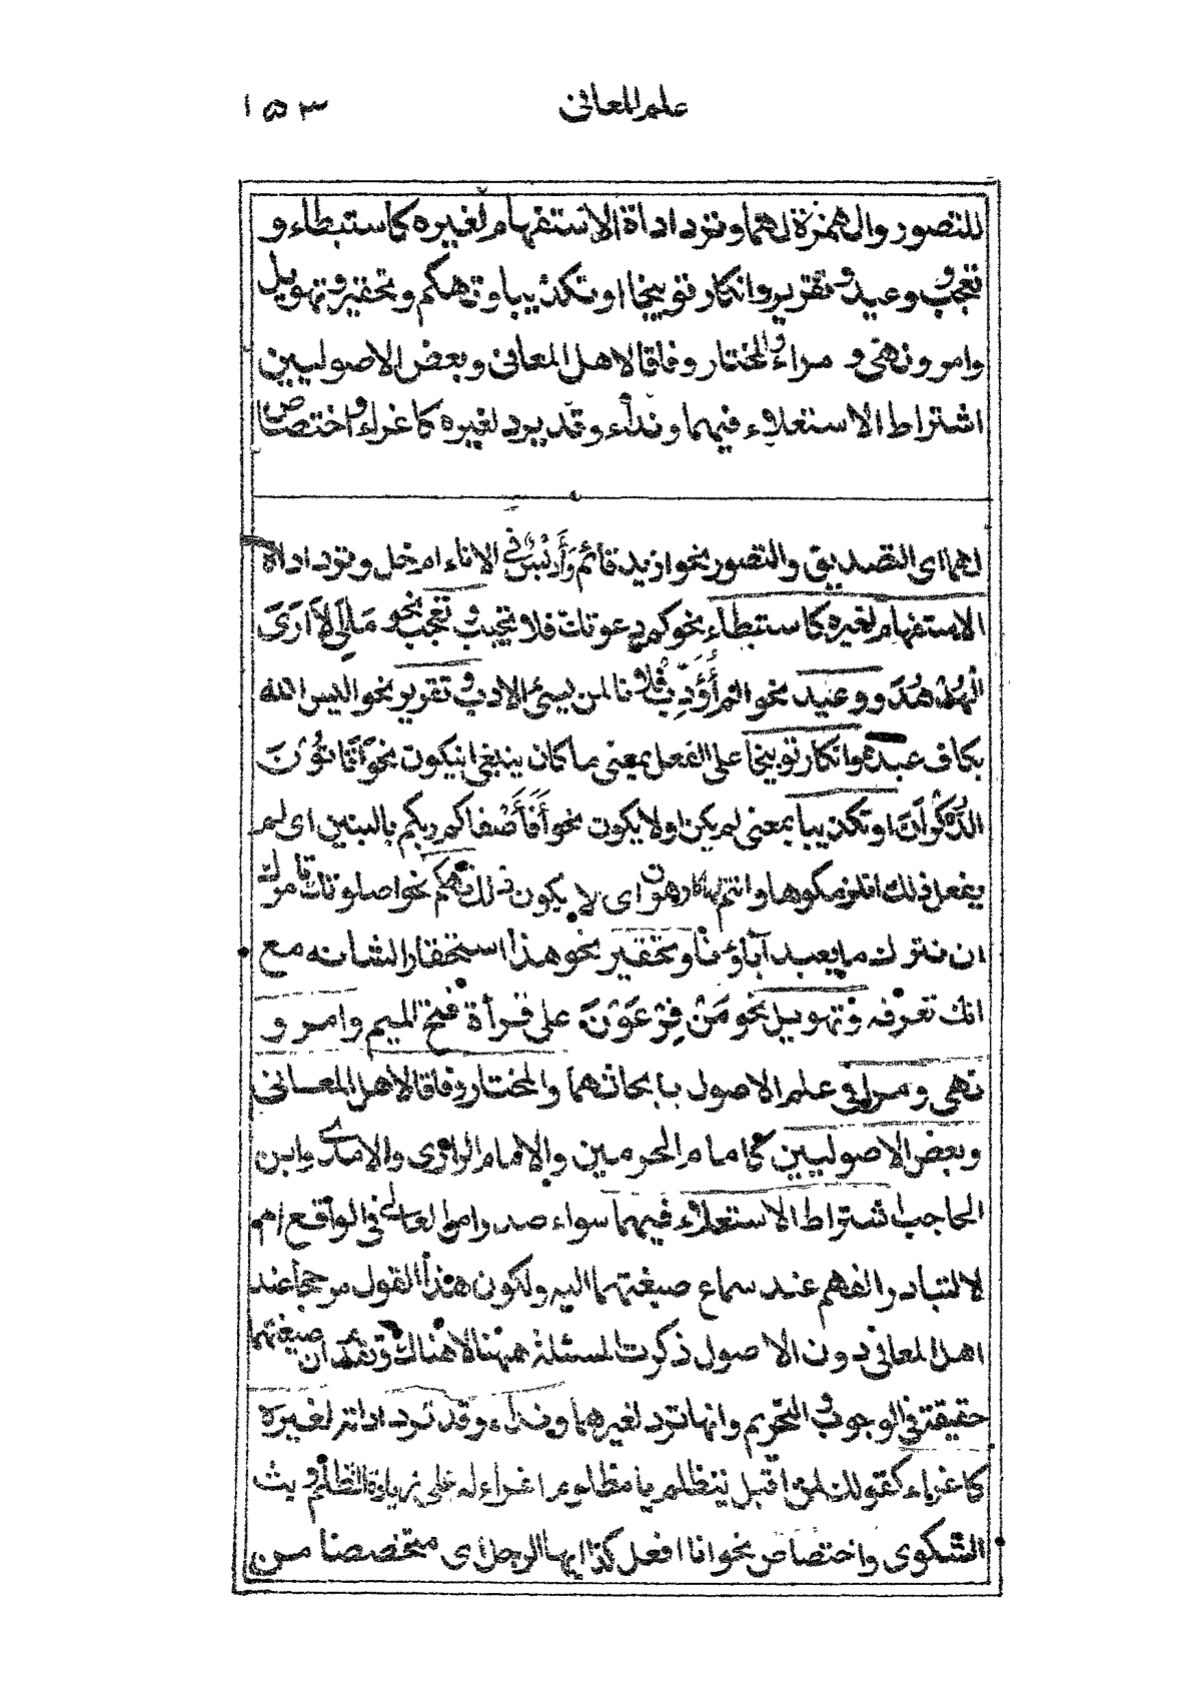 علم المعانى ١٥٣
للتصور والهمزة لهما وترد اداة الاستفهام لغيره كاستبطاء و
تعجب ووعيد وتقرير وانكار توبيخا او تكذيبا وتهكم وتحقير وتهويل
وامر ونهى و مراء والمختار وفاقا لاهل المعانى وبعض الاصوليين
اشتراط الاستعلاء فيهما ونداء وقد يرد لغيره كاغراء واختصاص
لهما اى التصديق والتصور نحو ازيد قائم وَأَدِبْسٌ فى الاناء ام خل وترد اداة
الاستفهام لغيره كاستبطاء نحو كم دعوتك فلا تجيب وتعجب نحو مَالِىَ لَا أَرَىَ
الْهُدْهُدَ ووعيد نحو الم أُؤَدِّبْ فُلَانا لمن يسئ الادب وتقرير نحو اليس الله
بكاف عبده وانكار توبيخا على الفعل بمعنى ما كان ينبغى ان يكون نحو أَتَأتُوْنَ
الذُّكْرَانَ او تكذيبا بمعنى لم يكن او لا يكون نحو أَفَأَصْفَاكم ربكم بالبنين اى لم
يفعل ذلك انلزمكموها وانتم لها كارهون اى لا يكون ذلك وتهكم نحو اصلوتك تامرك
ان نترك ما يعبد آباؤنا وتحقير نحو هذا استحقارا لشانه مع
انك تعرفه وتهويل نحو مَنْ فِرْعَوْنَ على قرأة فتح الميم وامر و
نهى ومرا فى علم الاصول بابحاثهما والمختار وفاقا لاهل المعانى
وبعض الاصوليين كامام الحرمين والامام الرازى والامدى وابن
الحاجب اشتراط الاستعلاء فيهما سواء صدر امن العالى فى الواقع ام
لا لتبادر الفهم عند سماع صيغتهما اليه ولكون هذا القول مرجحا عند
اهل المعانى دون الاصول ذكرت المسئلة ههنا لا هناك وتقدم ان صيغتهما
حقيقة فى الوجوب والتحريم وانها ترد لغيرهما ونداء وقد ترد اداته لغيره
كاغراء كقولك لمن اقبل يتظلم يا مظلوم اغراء له على زيادة التظلم وبث
الشكوى واختصاص نحو انا افعل كذا ايها الرجل اى متخصصا من